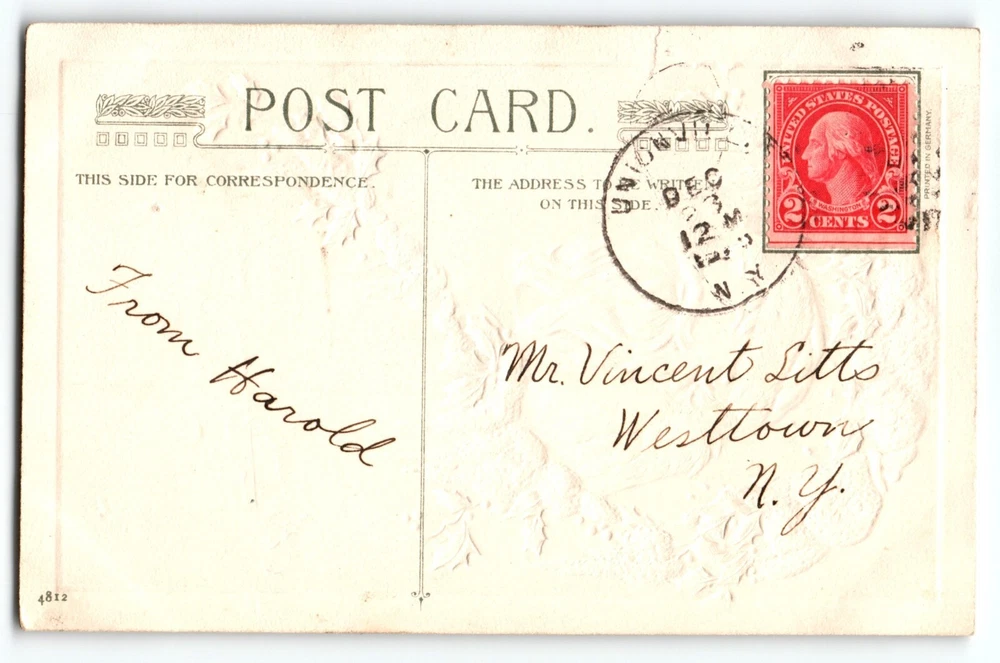 POST CARD.
THIS SIDE FOR CORRESPONDENCE.
THE ADDRESS TO BE WRITTEN
ON THIS SIDE.
DEC
12 M
N Y
UNITED STATES POSTAGE
WASHINGTON
2 CENTS 2
PRINTED IN GERMANY.
From Harold
Mr. Vincent Litts
Westtown
N. Y.
4812